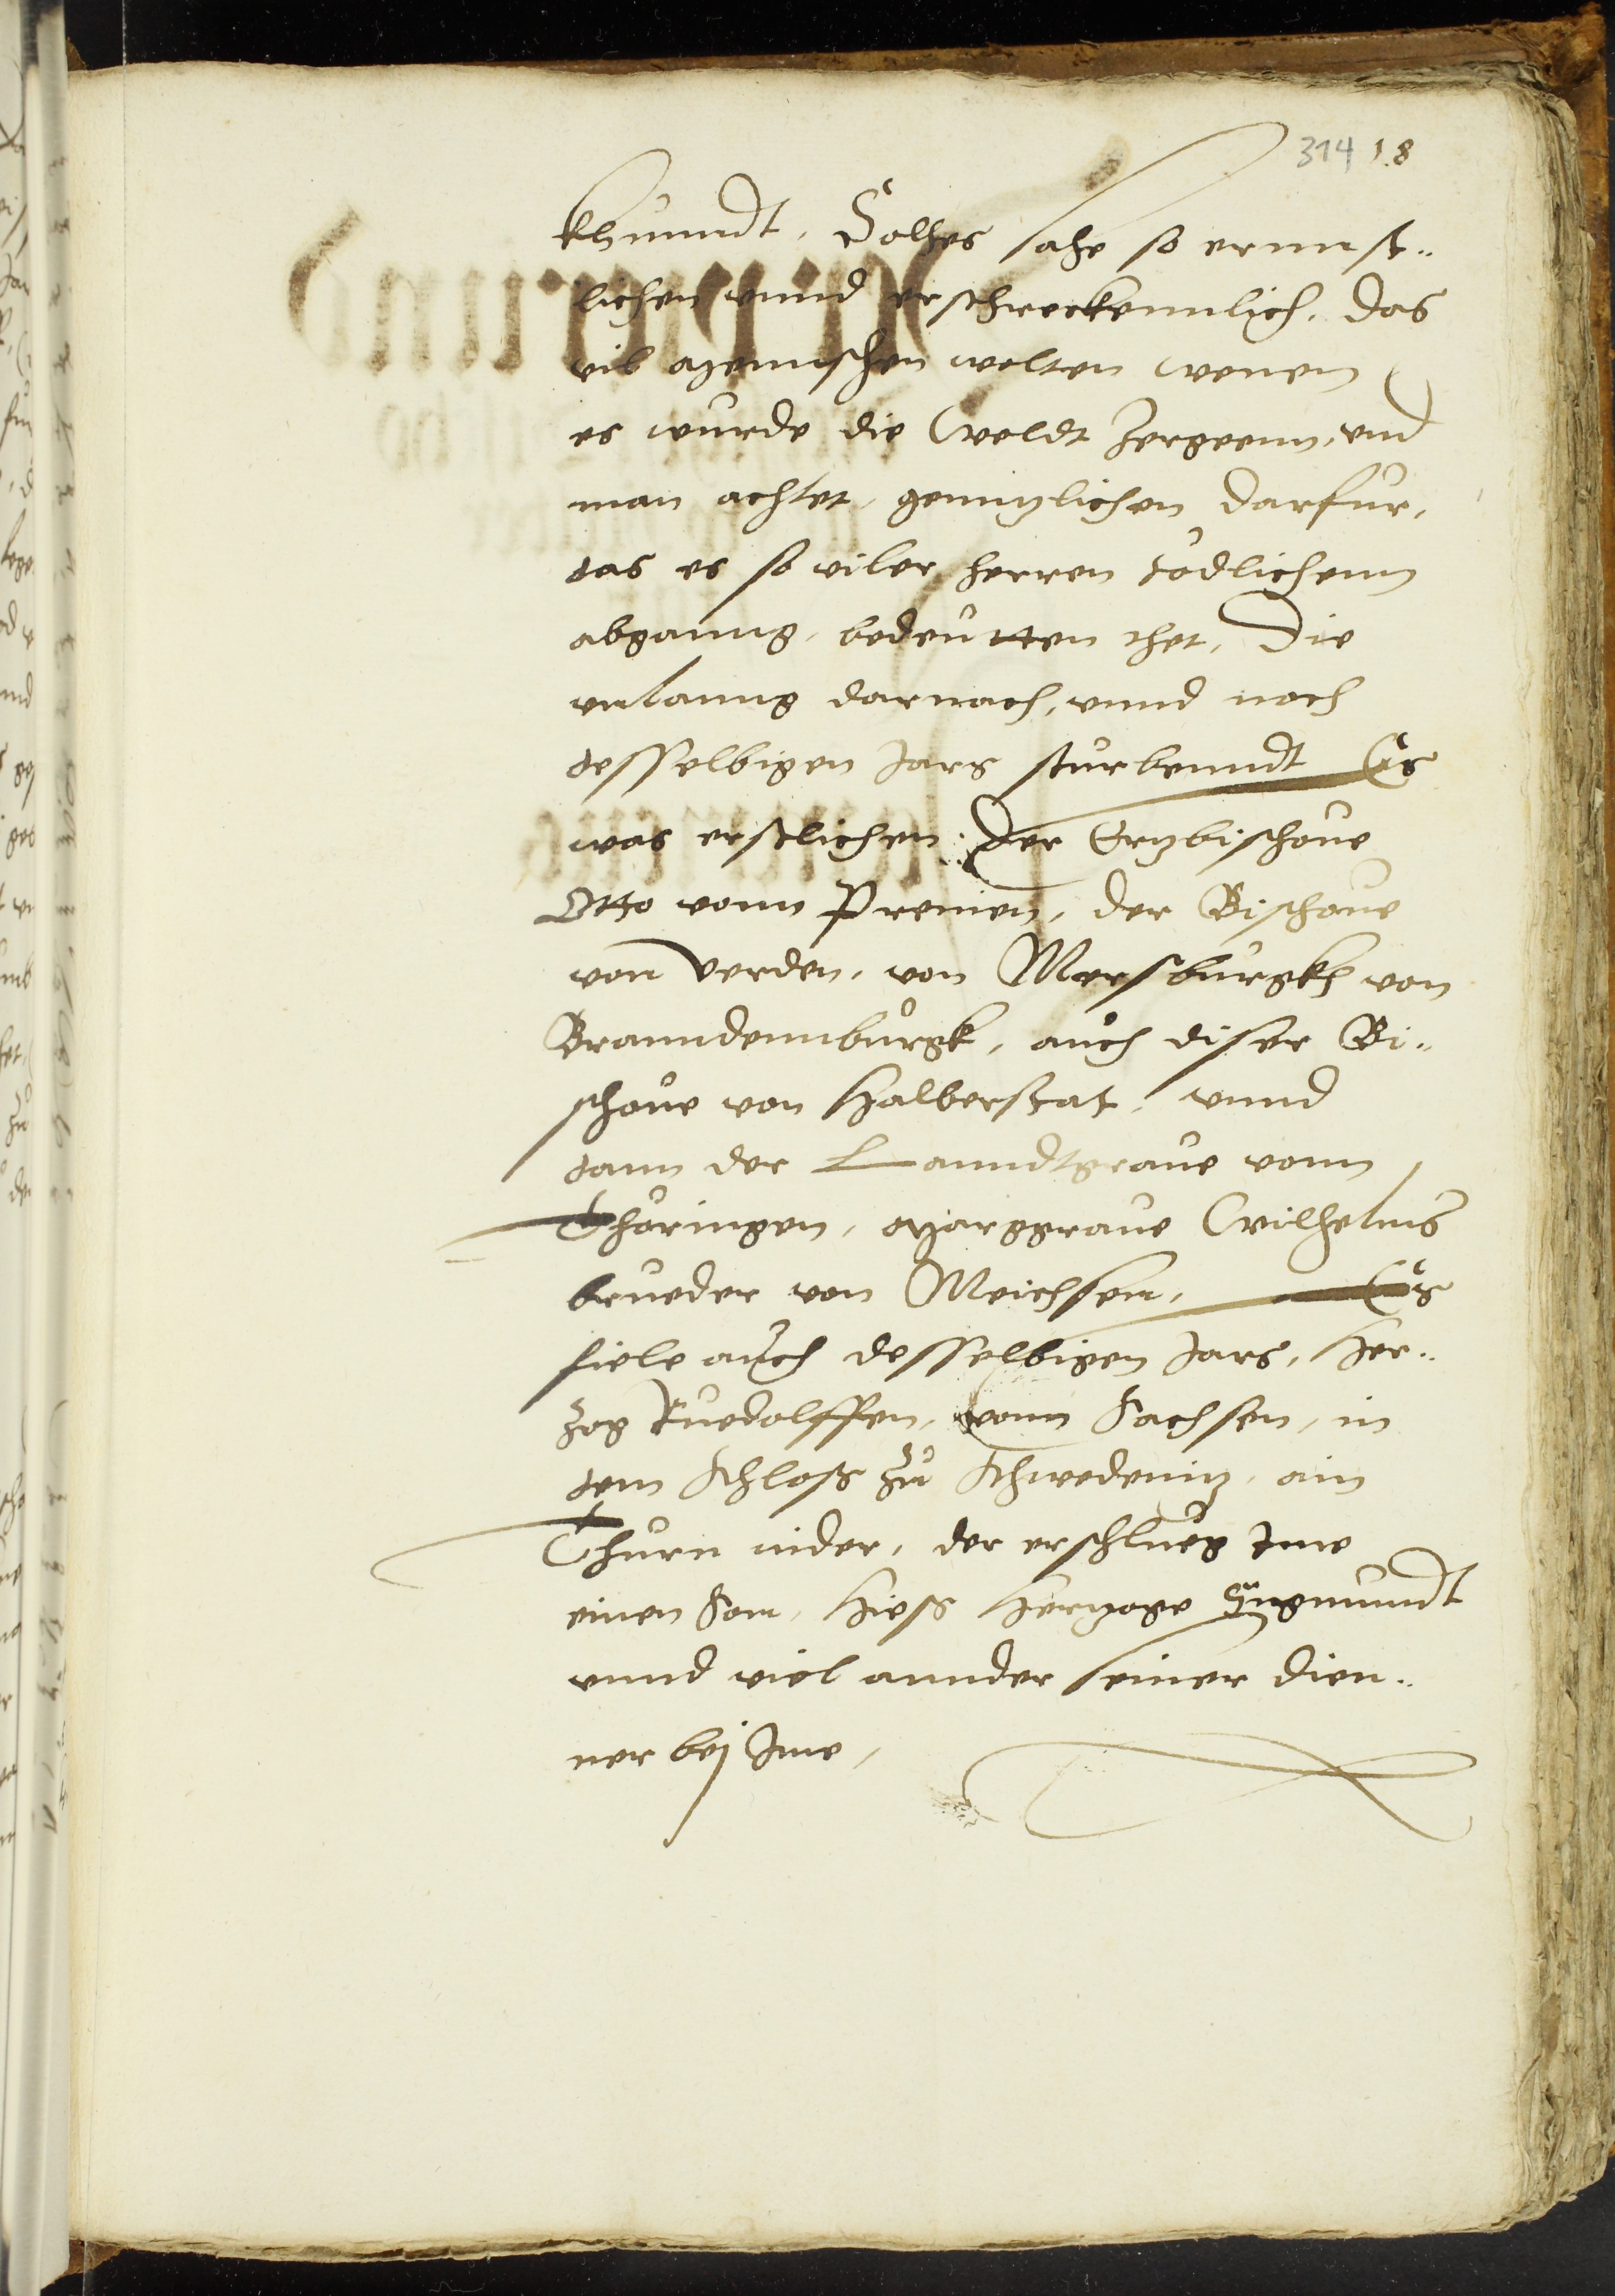 314 18
khumndt, Solhes sahe so ernnst-
lichen vnnd erschreckennlich, das
vil Mennschen wolten wenen
es wurde die Weldt zergeenn, vnd
man achtet, genntzlichen darfur,
das es so viler herren tödlichenn
abganng, bedeutten thet, Die
vnlanng darnach, vnnd noch
desselbigen Jars sturbenndt Es
was erstlichen: Der Ertzbischoue
Otto vonn Premen, der Bischoue
von Verden, von Mersburgkh von
Branndennburgk, auch diser Bi-
schoue von Halberstat, vnnd
dann der Lanndtgraue vonn
Thöringen, Marggraue Wilhelms
brueder von Meichsen, Es
fiele auch desselbigen Jars, Her-
zog Ruedolffen, vonn Sachsen, in
dem Schloß zu Schwedenitz, ain
Thurn nider, der erschlueg Ime
einen Son, hieß Hertzoge Sygmundt
vnnd viel annder seiner dien-
ner bej Ime,